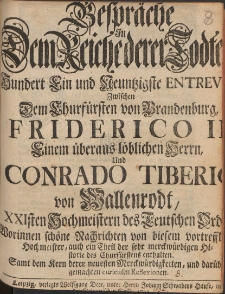 Gespräche
In
Dem Reiche derer Todte
Hundert Ein und Neuntzigste ENTREV
Zwischen
Dem Churfürsten von Brandenburg,
FRIDERICO II
Einem überaus löblichen Herrn,
Und
CONRADO TIBERIO
von Wallenrodt,
XXIsten Hochmeistern des Teutschen Ord
Worinnen schöne Nachrichten von diesem vortreffl
Hochmeister, auch ein Theil der sehr merckwürdigen Hi
storie des Churfürstens enthalten.
Samt dem Kern derer neuesten Merckwürdigkeiten, und darüb
gemachten curieusen Reflexionen.
8.
Leipzig, verlegts Wolffgang Deer, unter Herrn Johann Schwabens Hause, in